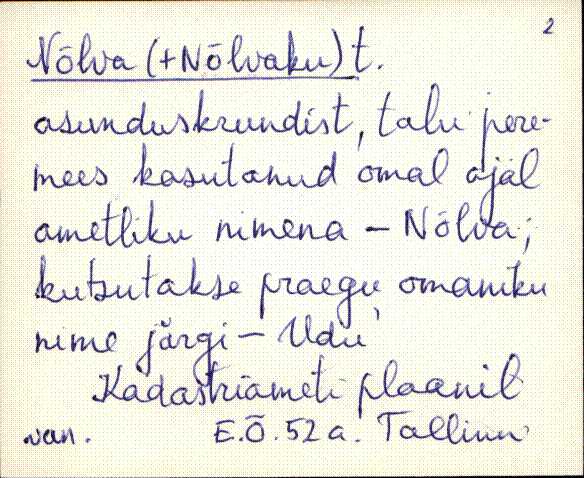 2
Nõlva (+Nõlvaku) t.
asunduskrundist, talu pere-
mees kasutanud omal ajal
ametliku nimena – Nõlva;
kutsutakse praegu omaniku
nime järgi – Udu
Kadastriameti plaanil
van. E.Õ. 52 a. Tallinn